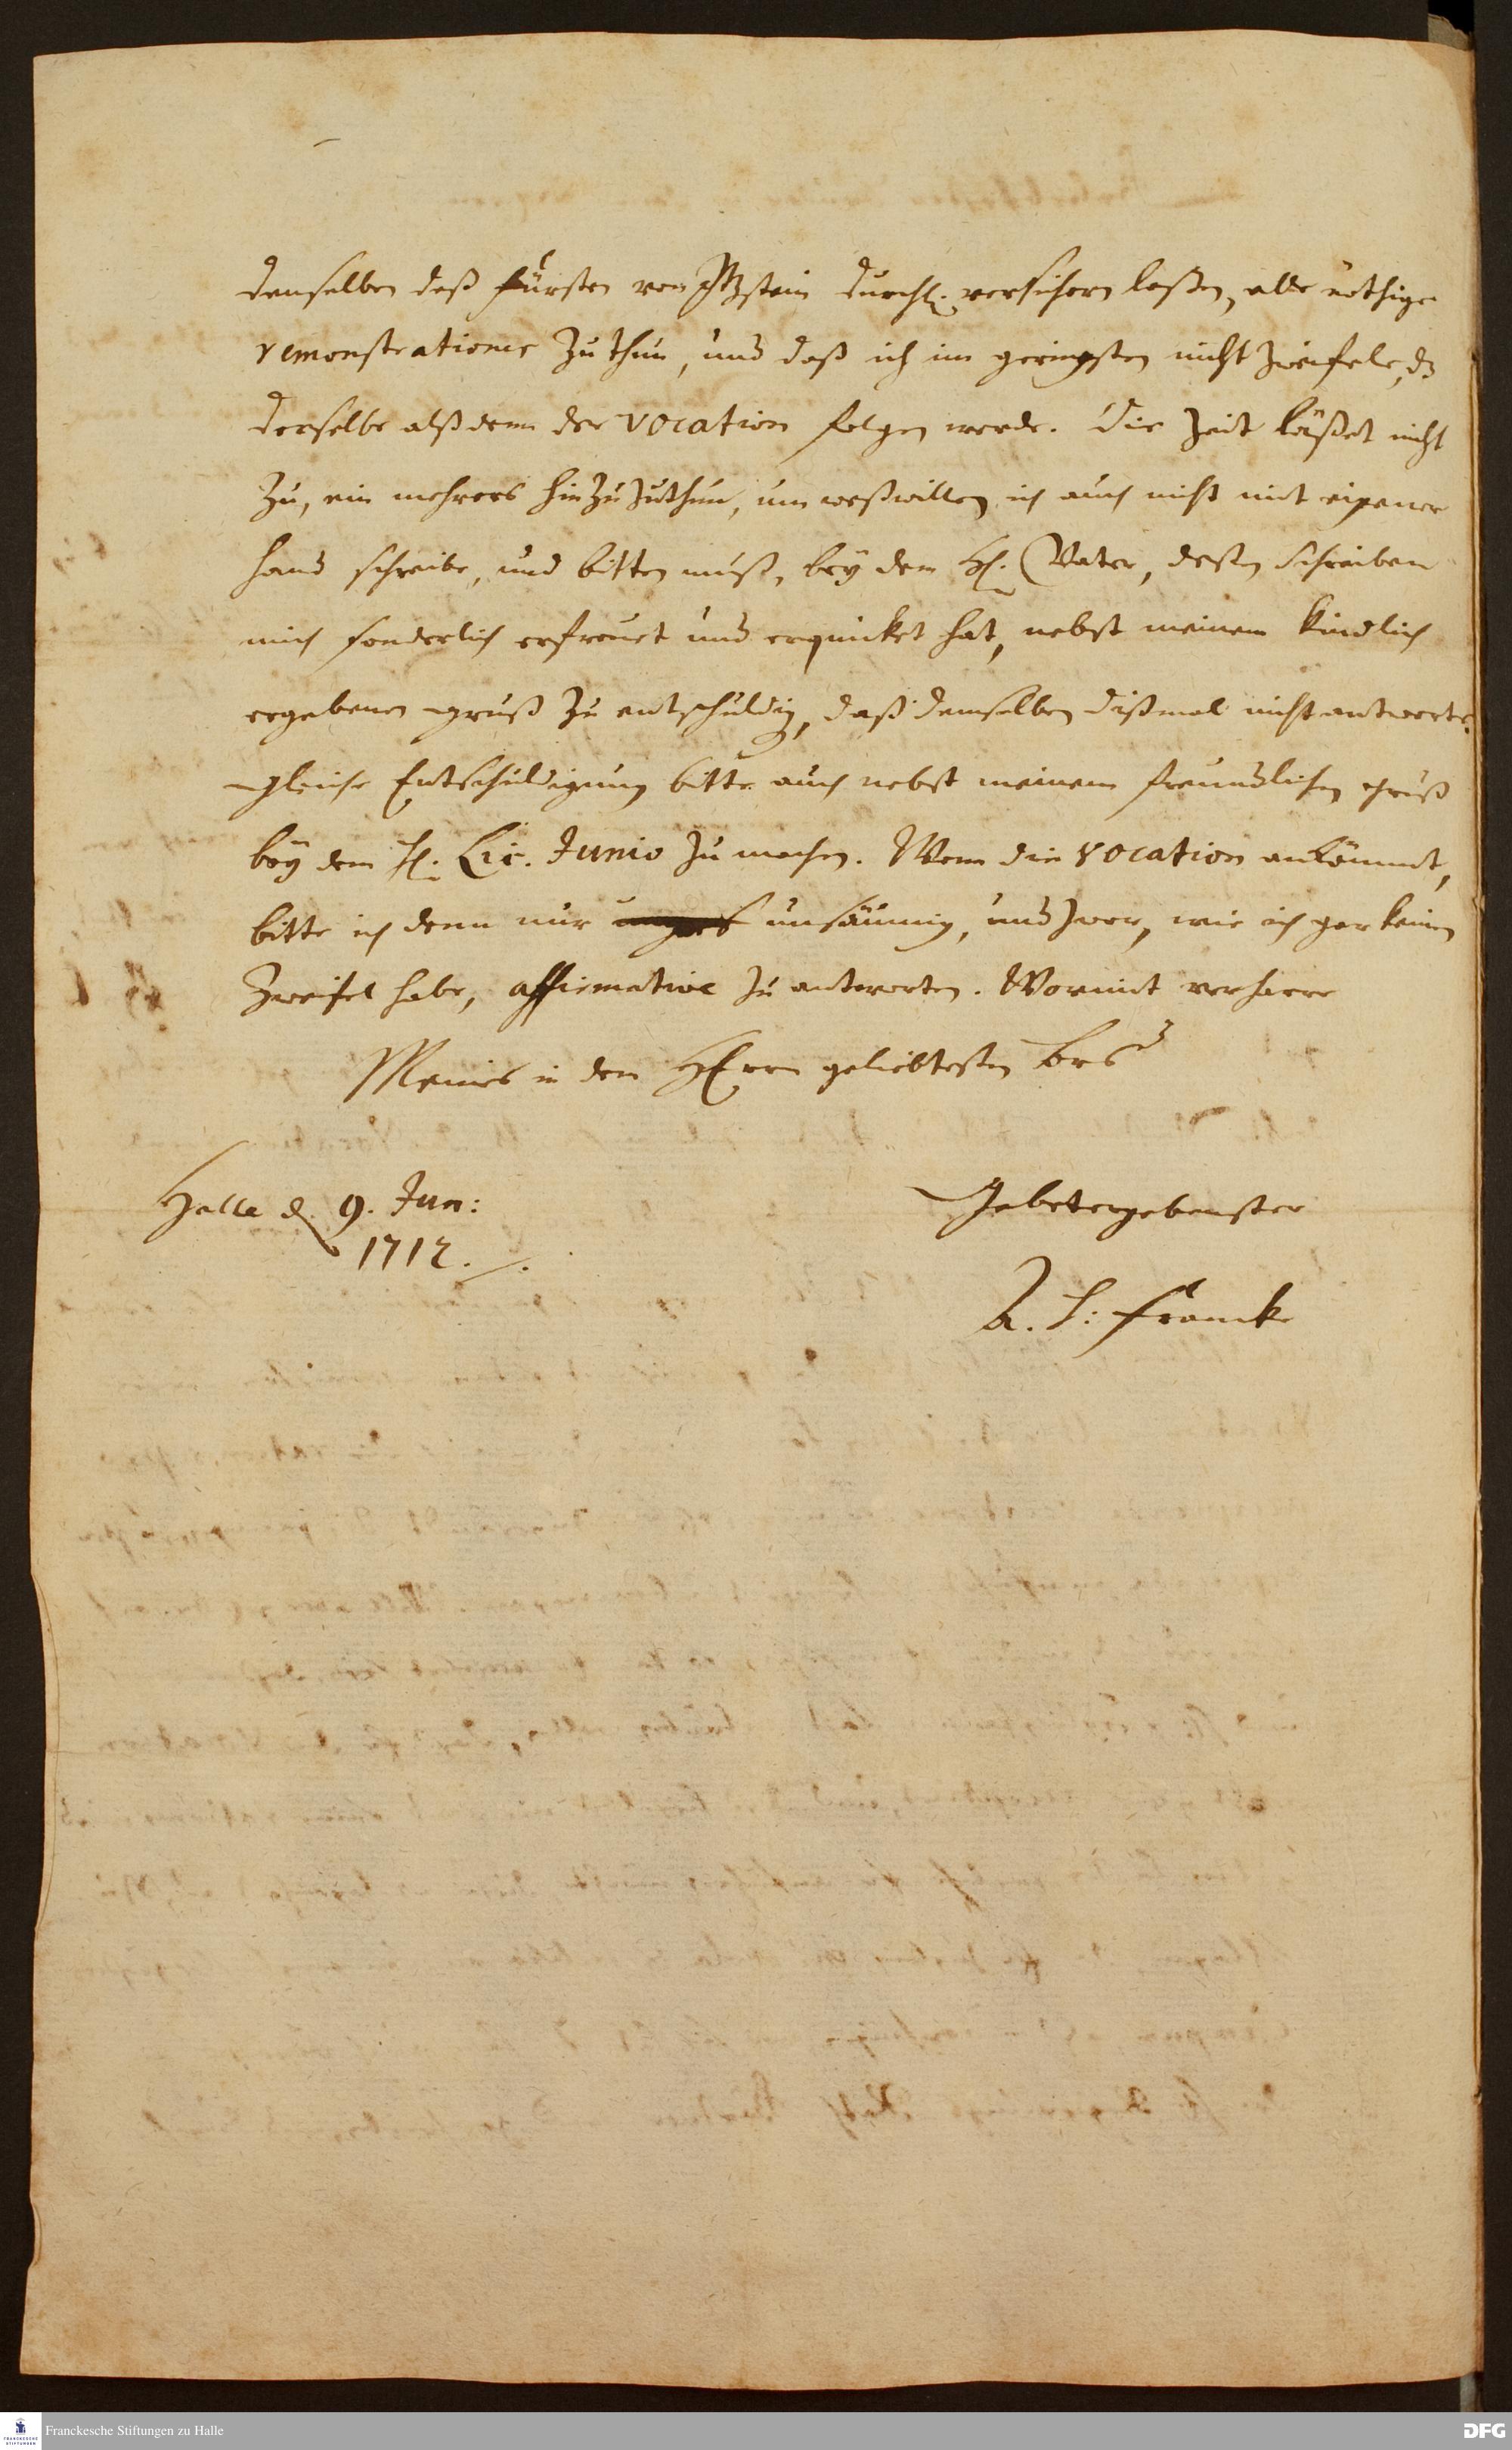 denselben deß Fürsten von Itzstein Durchl. versichern laßen, alle nöthige
remonstrationes zu thun, und daß ich im geringsten nicht zweifele, dz
derselbe alßdenn der vocation folgen werde. Die Zeit läßet nicht
zu, ein mehrers hinzu zuthun, um weßwillen ich auch nicht mit eigener
Hand schreibe, und bitten muß, bey dem H. Vater, deßen Schreiben
mich sonderlich erfreuet und erquicket hat, nebst meinem kindlich
ergebenen gruß zu entschuldig, daß demselben dißmal nicht antworte.
Gleiche Entschuldigung bitte auch nebst meinem freundlichen gruß
bey dem H. Lic. Junio zu machen. Wenn die vocation ankömmt,
bitte ich denn nur unsäumig, und zwar, wie ich gar keinen
Zweifel habe, affirmative zu antworten. Womit verharre
Meines in dem HErrn geliebtesten Brs
Halle d. 9. Jun:
1712.
Gebetergebenster
A. H: Francke
Franckesche Stiftungen zu Halle
DFG